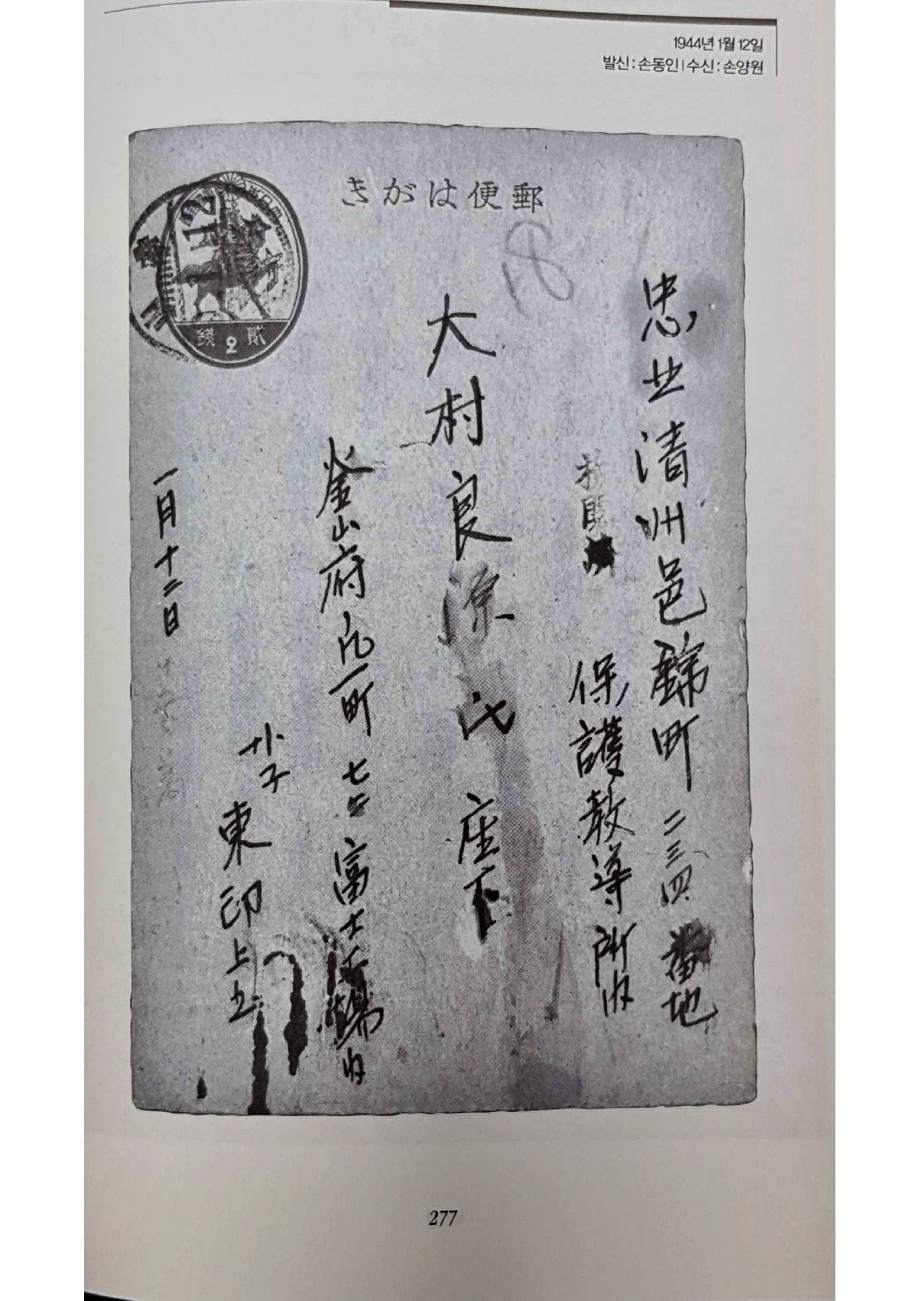 1944년 1월 12일
발신 : 손동인 | 수신 : 손양원
郵便はがき
貳錢
2
12
忠北清州邑錦町 二三四 番地
保護教導所内
大村良源氏 座下
釜山府凡一町 七二 富士工場内
小子
東印上言
一月十二日
277